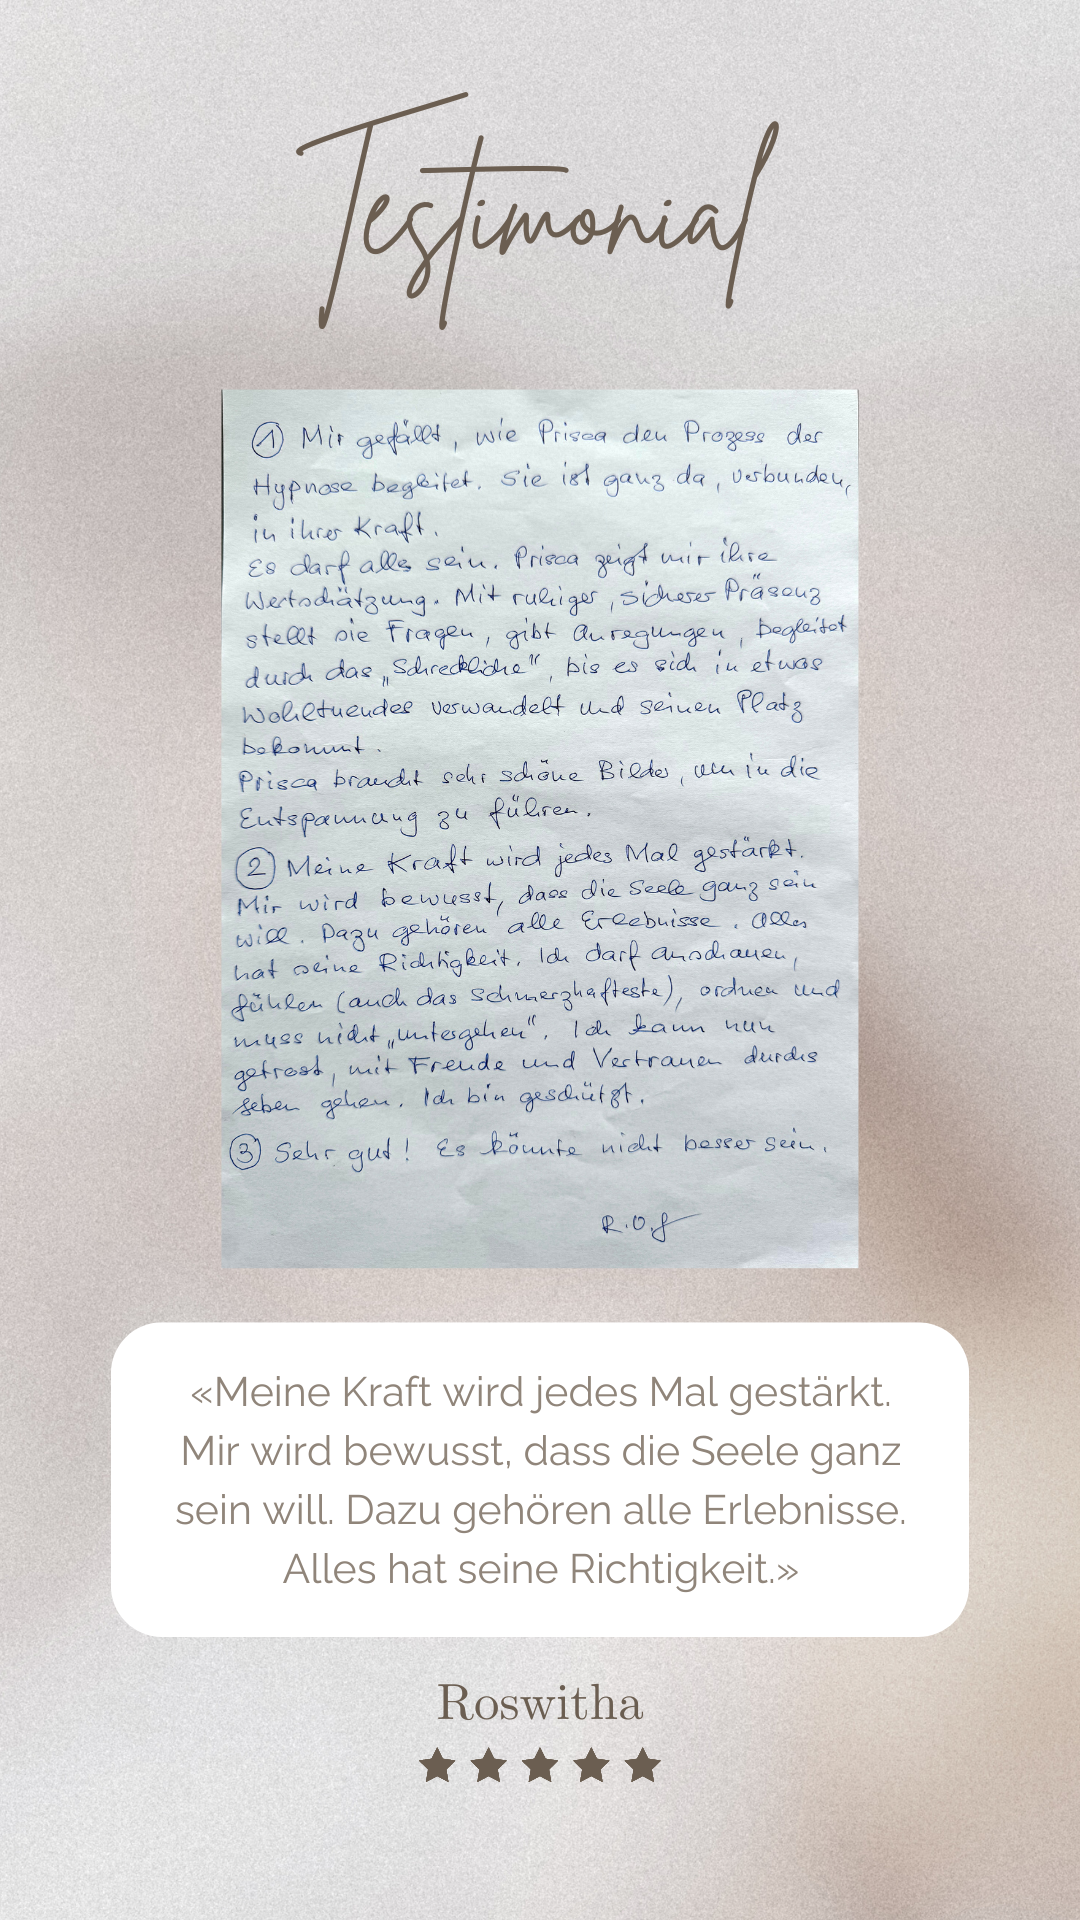 Testimonial
① Mir gefällt, wie Prisca den Prozess der
Hypnose begleitet. Sie ist ganz da, verbunden,
in ihrer Kraft.
Es darf alles sein. Prisca zeigt mir ihre
Wertschätzung. Mit ruhiger, sicherer Präsenz
stellt sie Fragen, gibt Anregungen, begleitet
durch das „Schreckliche“, bis es sich in etwas
Wohltuendes verwandelt und seinen Platz
bekommt.
Prisca braucht sehr schöne Bilder, um in die
Entspannung zu führen.
② Meine Kraft wird jedes Mal gestärkt.
Mir wird bewusst, dass die Seele ganz sein
will. Dazu gehören alle Erlebnisse. Alles
hat seine Richtigkeit. Ich darf anschauen,
fühlen (auch das Schmerzhafteste), ordnen und
muss nicht „untergehen“. Ich kann nun
getrost, mit Freude und Vertrauen durchs
Leben gehen. Ich bin geschützt.
③ Sehr gut! Es könnte nicht besser sein.
R.O.
«Meine Kraft wird jedes Mal gestärkt.
Mir wird bewusst, dass die Seele ganz
sein will. Dazu gehören alle Erlebnisse.
Alles hat seine Richtigkeit.»
Roswitha